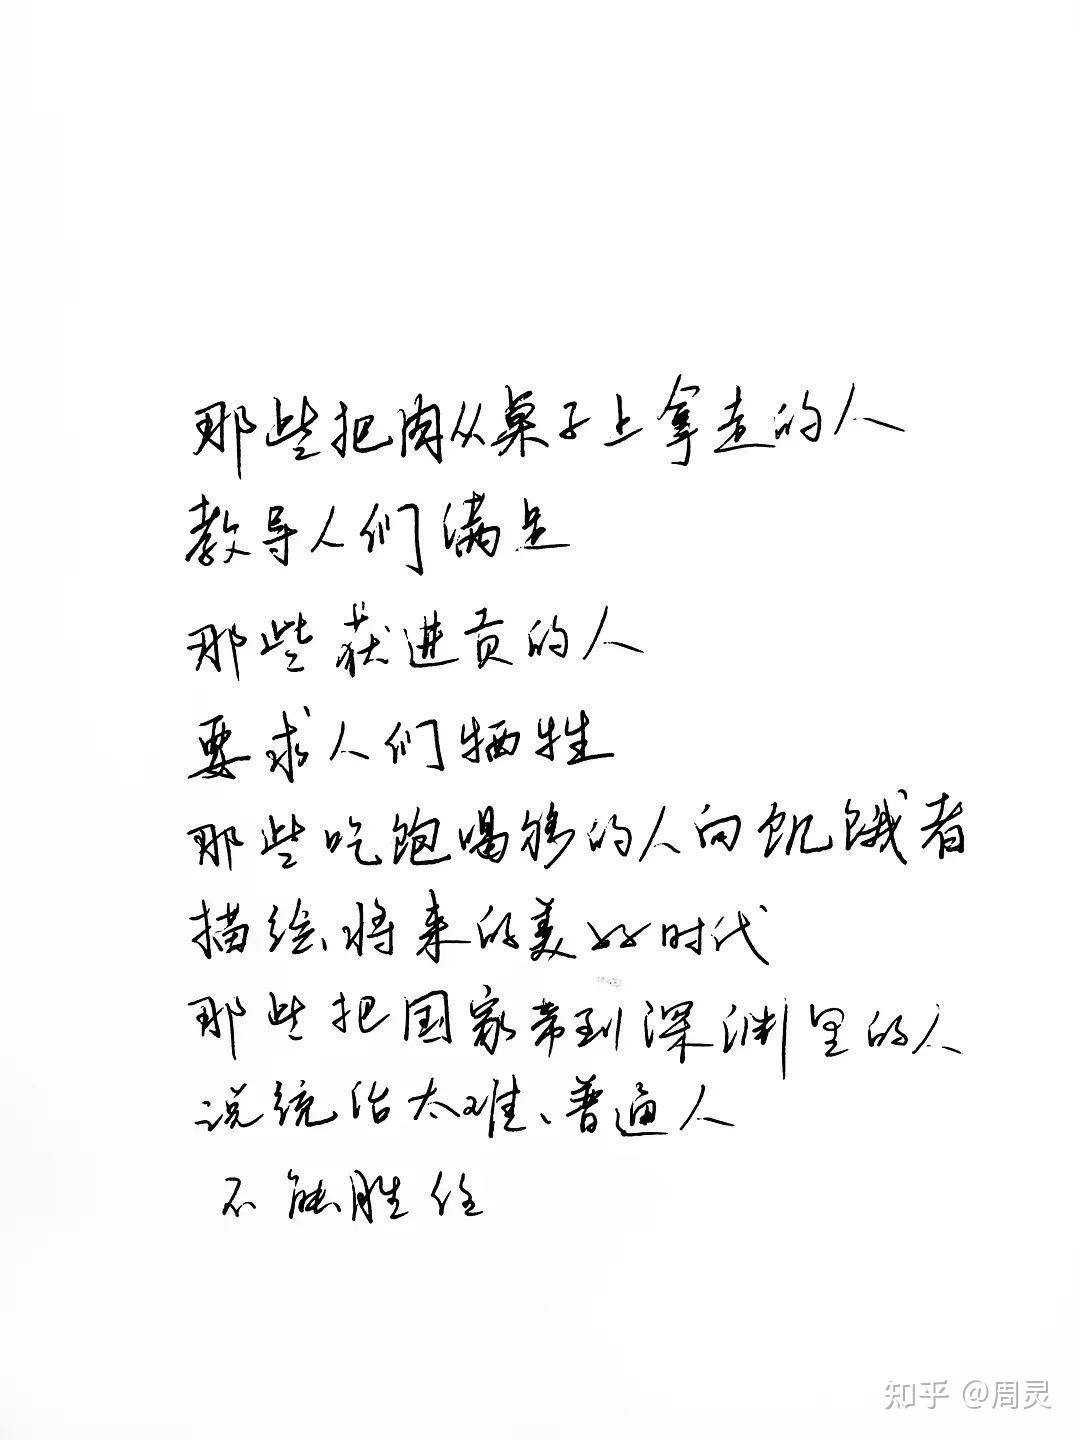 那些把肉从桌子上拿走的人
教导人们满足
那些获进贡的人
要求人们牺牲
那些吃饱喝够的人向饥饿者
描绘将来的美好时代
那些把国家带到深渊里的人
说统治太难、普通人
不能胜任
知乎 @周灵